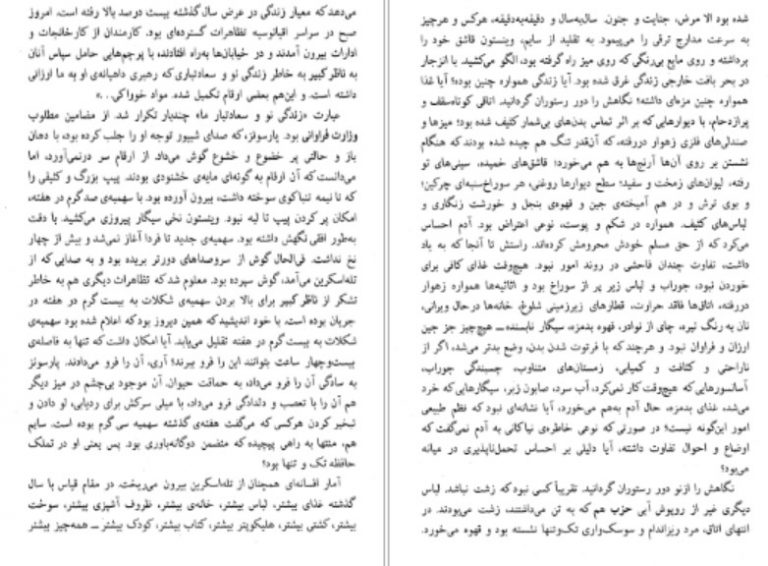 می‌دهد که معیار زندگی در عرض سال گذشته بیست درصد بالا رفته است. امروز
صبح در سراسر اقیانوسیه تظاهرات گسترده‌ای بود. کارمندان از کارخانجات و
ادارات بیرون آمدند و در خیابان‌ها به‌راه افتادند، با پرچم‌هایی حامل سپاس آنان
به ناظر کبیر به خاطر زندگی نو و سعادتباری که رهبری داهیانه‌ی او به ما ارزانی
داشته است. و این‌هم بعضی ارقام تکمیل شده. مواد خوراکی...»
عبارت «زندگی نو و سعادتبار ما» چندبار تکرار شد. از مضامین مطلوب
وزارت فراوانی بود. پارسونز، که صدای شیپور توجه او را جلب کرده بود، با دهان
باز و حالتی پر خضوع و خشوع گوش می‌داد. از ارقام سر درنمی‌آورد، اما
می‌دانست که آن ارقام به گونه‌ای مایه‌ی خشنودی بودند. پیپ بزرگ و کثیفی را
که تا نیمه تنباکوی سوخته داشت، بیرون آورده بود. با سهمیه‌ی صدگرم در هفته،
امکان پر کردن پیپ تا لبه نبود. وینستون نخی سیگار پیروزی می‌کشید. با دقت
به‌طور افقی نگهش داشته بود. سهمیه‌ی جدید تا فردا آغاز نمی‌شد و بیش از چهار
نخ نداشت. فی‌الحال گوش از سروصداهای دورتر بریده بود و به صدایی که از
تله‌اسکرین می‌آمد، گوش سپرده بود. معلوم شد که تظاهرات دیگری هم به خاطر
تشکر از ناظر کبیر برای بالا بردن سهمیه‌ی شکلات به بیست گرم در هفته در
جریان بوده است. با خود اندیشید که همین دیروز بود که اعلام شده بود سهمیه‌ی
شکلات به بیست گرم در هفته تقلیل می‌یابد. آیا امکان داشت که تنها به فاصله‌ی
بیست‌وچهار ساعت بتوانند این را فرو ببرند؟ آری، آن را فرو می‌دادند. پارسونز
به سادگی آن را فرو می‌داد، به حماقت حیوان. آن موجود بی‌چشم در میز دیگر
هم آن را با تعصب و دلدادگی فرو می‌داد، با میلی سرکش برای ردیابی، لو دادن و
تبخیر کردن هرکسی که می‌گفت هفته‌ی گذشته سهمیه سی گرم بوده است. سایم
هم، منتها به راهی پیچیده که متضمن دوگانه‌باوری بود. پس یعنی او در تملک
حافظه تک و تنها بود؟
آمار افسانه‌ای همچنان از تله‌اسکرین بیرون می‌ریخت. در مقام قیاس با سال
گذشته غذای بیشتر، لباس بیشتر، خانه‌ی بیشتر، ظروف آشپزی بیشتر، سوخت
بیشتر، کشتی بیشتر، هلیکوپتر بیشتر، کتاب بیشتر، کودک بیشتر ــ همه‌چیز بیشتر
شده بود الا مرض، جنایت و جنون. سال‌به‌سال و دقیقه‌به‌دقیقه، هرکس و هرچیز
به سرعت مدارج ترقی را می‌پیمود. به تقلید از سایم، وینستون قاشق خود را
برداشته و روی مایع بی‌رنگی که روی میز راه گرفته بود، الگو می‌کشید. با انزجار
در بحر بافت خارجی زندگی غرق شده بود. آیا زندگی همواره چنین بوده؟ آیا غذا
همواره چنین مزه‌ای داشته؟ نگاهش را دور رستوران گردانید. اتاقی کوتاه‌سقف و
پرازدحام، با دیوارهایی که بر اثر تماس بدن‌های بی‌شمار کثیف شده بود؛ میزها و
صندلی‌های فلزی زهوار دررفته، که آن‌قدر تنگ هم چیده شده بودند که هنگام
نشستن بر روی آن‌ها آرنج‌ها به هم می‌خورد؛ قاشق‌های خمیده، سینی‌های تو
رفته، لیوان‌های زمخت و سفید؛ سطح دیوارها روغنی، هر سوراخ‌سنبه‌ای چرکین؛
و بوی ترش و در هم آمیخته‌ی جین و قهوه‌ی بنجل و خورشت زنگاری و
لباس‌های کثیف. همواره در شکم و پوست، نوعی اعتراض بود. آدم احساس
می‌کرد که از حق مسلم خودش محرومش کرده‌اند. راستش تا آنجا که به یاد
داشت، تفاوت چندان فاحشی در روند امور نبود. هیچ‌وقت غذای کافی برای
خوردن نبود، جوراب و لباس زیر پر از سوراخ بود و اثاثیه‌ها همواره زهوار
دررفته، اتاق‌ها فاقد حرارت، قطارهای زیرزمینی شلوغ، خانه‌ها در حال ویرانی،
نان به رنگ تیره، چای از نوادر، قهوه بدمزه، سیگار نابسنده ــ هیچ‌چیز جز جین
ارزان و فراوان نبود. و هرچند که با فرتوت شدن بدن، وضع بدتر می‌شد، اگر از
ناراحتی و کثافت و کمیابی، زمستان‌های متناوب، چسبندگی جوراب،
آسانسورهایی که هیچ‌وقت کار نمی‌کرد، آب سرد، صابون زبر، سیگارهایی که خرد
می‌شد، غذای بدمزه، حال آدم به‌هم می‌خورد، آیا نشانه‌ای نبود که نظم طبیعی
امور این‌گونه نیست؟ در صورتی که نوعی خاطره‌ی نیاکانی به آدم نمی‌گفت که
اوضاع و احوال تفاوت داشته، آیا دلیلی بر احساس تحمل‌ناپذیری در میانه
می‌بود؟
نگاهش را از نو دور رستوران گردانید. تقریباً کسی نبود که زشت نباشد. لباس
دیگری غیر از روپوش آبی حزب هم که به تن می‌داشتند، زشت می‌بودند. در
انتهای اتاق، مرد ریزاندام و سوسک‌واری تک‌وتنها نشسته بود و قهوه می‌خورد.